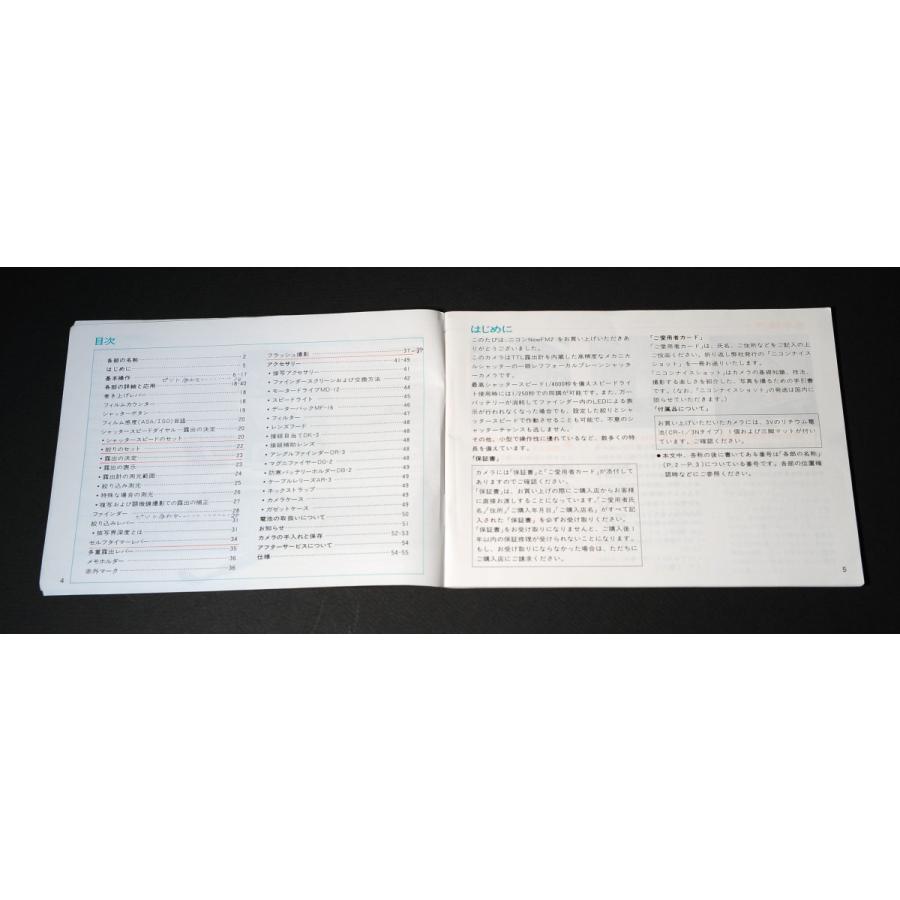 目次
各部の名称 2
はじめに 5
基本操作 6-17
各部の詳細と応用 18-40
巻き上げレバー 18
フィルムカウンター 18
シャッターボタン 19
フィルム感度(ASA/ISO)目盛 20
シャッタースピードダイヤル—露出の決定 20
•シャッタースピードのセット 20
•絞りのセット 22
•露出の決定 23
•露出の表示 23
•露出計の測光範囲 24
•絞り込み測光 25
•特殊な場合の測光 26
•複写および顕微鏡撮影での露出の補正 27
ファインダー 28
絞り込みレバー 31
•被写界深度とは 31
セルフタイマーレバー 34
多重露出レバー 35
メモホルダー 36
赤外マーク 36
4
フラッシュ撮影 37-39
アクセサリー 41-49
•接写アクセサリー 41
•ファインダースクリーンおよび交換方法 42
•モータードライブMD-12 44
•スピードライト 45
•データーバックMF-16 46
•フィルター 47
•レンズフード 48
•接眼目当てDK-3 48
•接眼補助レンズ 48
•アングルファインダーDR-3 48
•マグニファイヤーDG-2 48
•防寒バッテリーホルダーDB-2 49
•ケーブルレリーズAR-3 49
•ネックストラップ 49
•カメラケース 49
•ガゼットケース 49
電池の取扱いについて 50
お知らせ 51
カメラの手入れと保存 52-53
アフターサービスについて 54
仕様 54-55
はじめに
このたびは、ニコンNewFM2をお買い上げいただきあ
りがとうございました。
このカメラはTTL露出計を内蔵した高精度なメカニカ
ルシャッターの一眼レフフォーカルプレーンシャッタ
ーカメラです。
最高シャッタースピード1/4000秒を備えスピードライ
ト使用時には1/250秒での同調が可能です。また、万一
バッテリーが消耗してファインダー内のLEDによる表
示が行われなくなった場合でも、設定した絞りとシャ
ッタースピードで作動させることも可能で、不意のシ
ャッターチャンスも逃しません。
その他、小型で操作性に優れているなど、数多くの特
長を備えています。
「保証書」
カメラには「保証書」と「ご愛用者カード」が添付して
ありますのでご確認ください。
「保証書」は、お買い上げの際にご購入店からお客様
に直接お渡しすることになっています。「ご愛用者氏
名」「住所」「ご購入年月日」「ご購入店名」がすべて記
入された「保証書」を必ずお受取りください。
「保証書」をお受け取りになりませんと、ご購入後1
年以内の保証修理が受けられないことになります。
もし、お受け取りにならなかった場合は、ただちに
ご購入店にご請求ください。
「ご愛用者カード」
「ご愛用者カード」は、氏名、ご住所などをご記入の上
ご投函ください。折り返し弊社発行の「ニコンナイス
ショット」を一冊お送りいたします。
「ニコンナイスショット」はカメラの基礎知識、技法、
撮影する楽しさを紹介した、写真を撮るための手引書
です。(なお、「ニコンナイスショット」の発送は国内に
限らせていただきます。)
「付属品について」
お買い上げいただいたカメラには、3Vのリチウム電
池(CR-1/3Nタイプ)1個および三脚マットが付い
ています。ご確認ください。
●本文中、各称の後に書いてある番号は「各部の名称」
(P.2—P.3)についている番号です。各部の位置確
認時などにご参照ください。
5